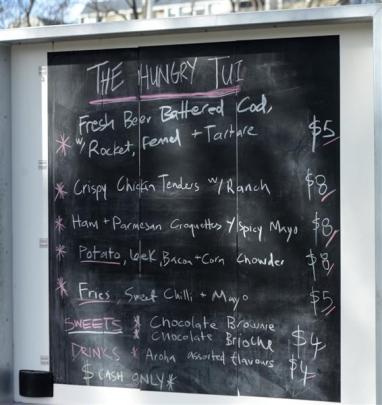 THE HUNGRY TUI
Fresh Beer Battered Cod,
w/ Rocket, Fennel + Tartare $5
* Crispy Chicken Tenders w/ Ranch $8
* Ham + Parmesan Croquettes w/ Spicy Mayo $8
* Potato, Leek, Bacon + Corn Chowder $8
* Fries, Sweet Chilli + Mayo $5
SWEETS * Chocolate Brownie
* Chocolate Brioche $4
DRINKS * Aroha assorted flavours $4
$ CASH ONLY *